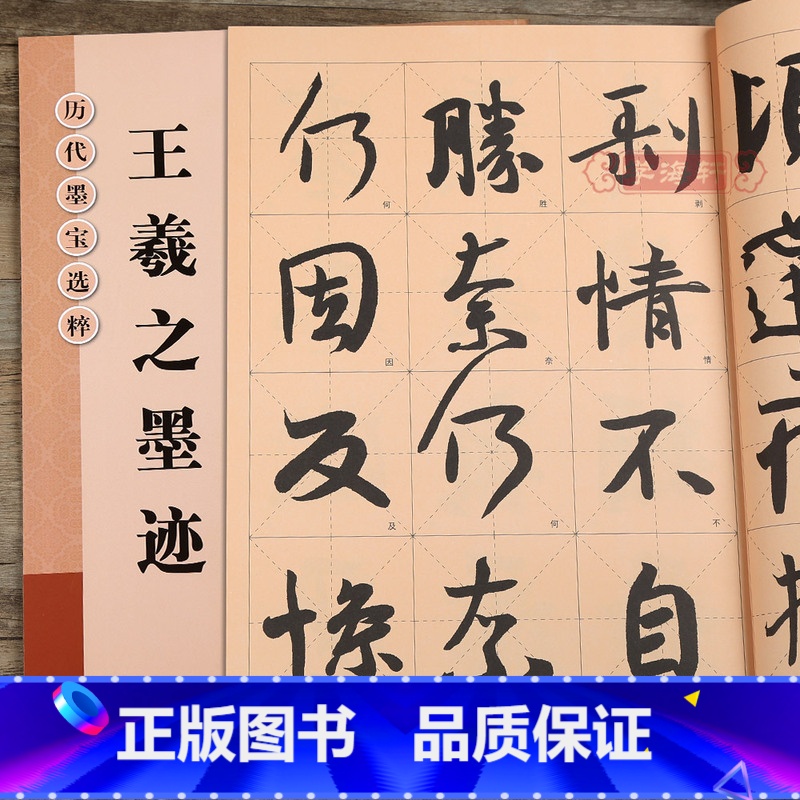 历代墨宝选粹
王羲之墨迹
剥 情 不 自
剥
情
不
胜 奈 何 奈
胜
奈
何
何 因 及 惊
何
因
及
学海轩
正版图书 品质保证